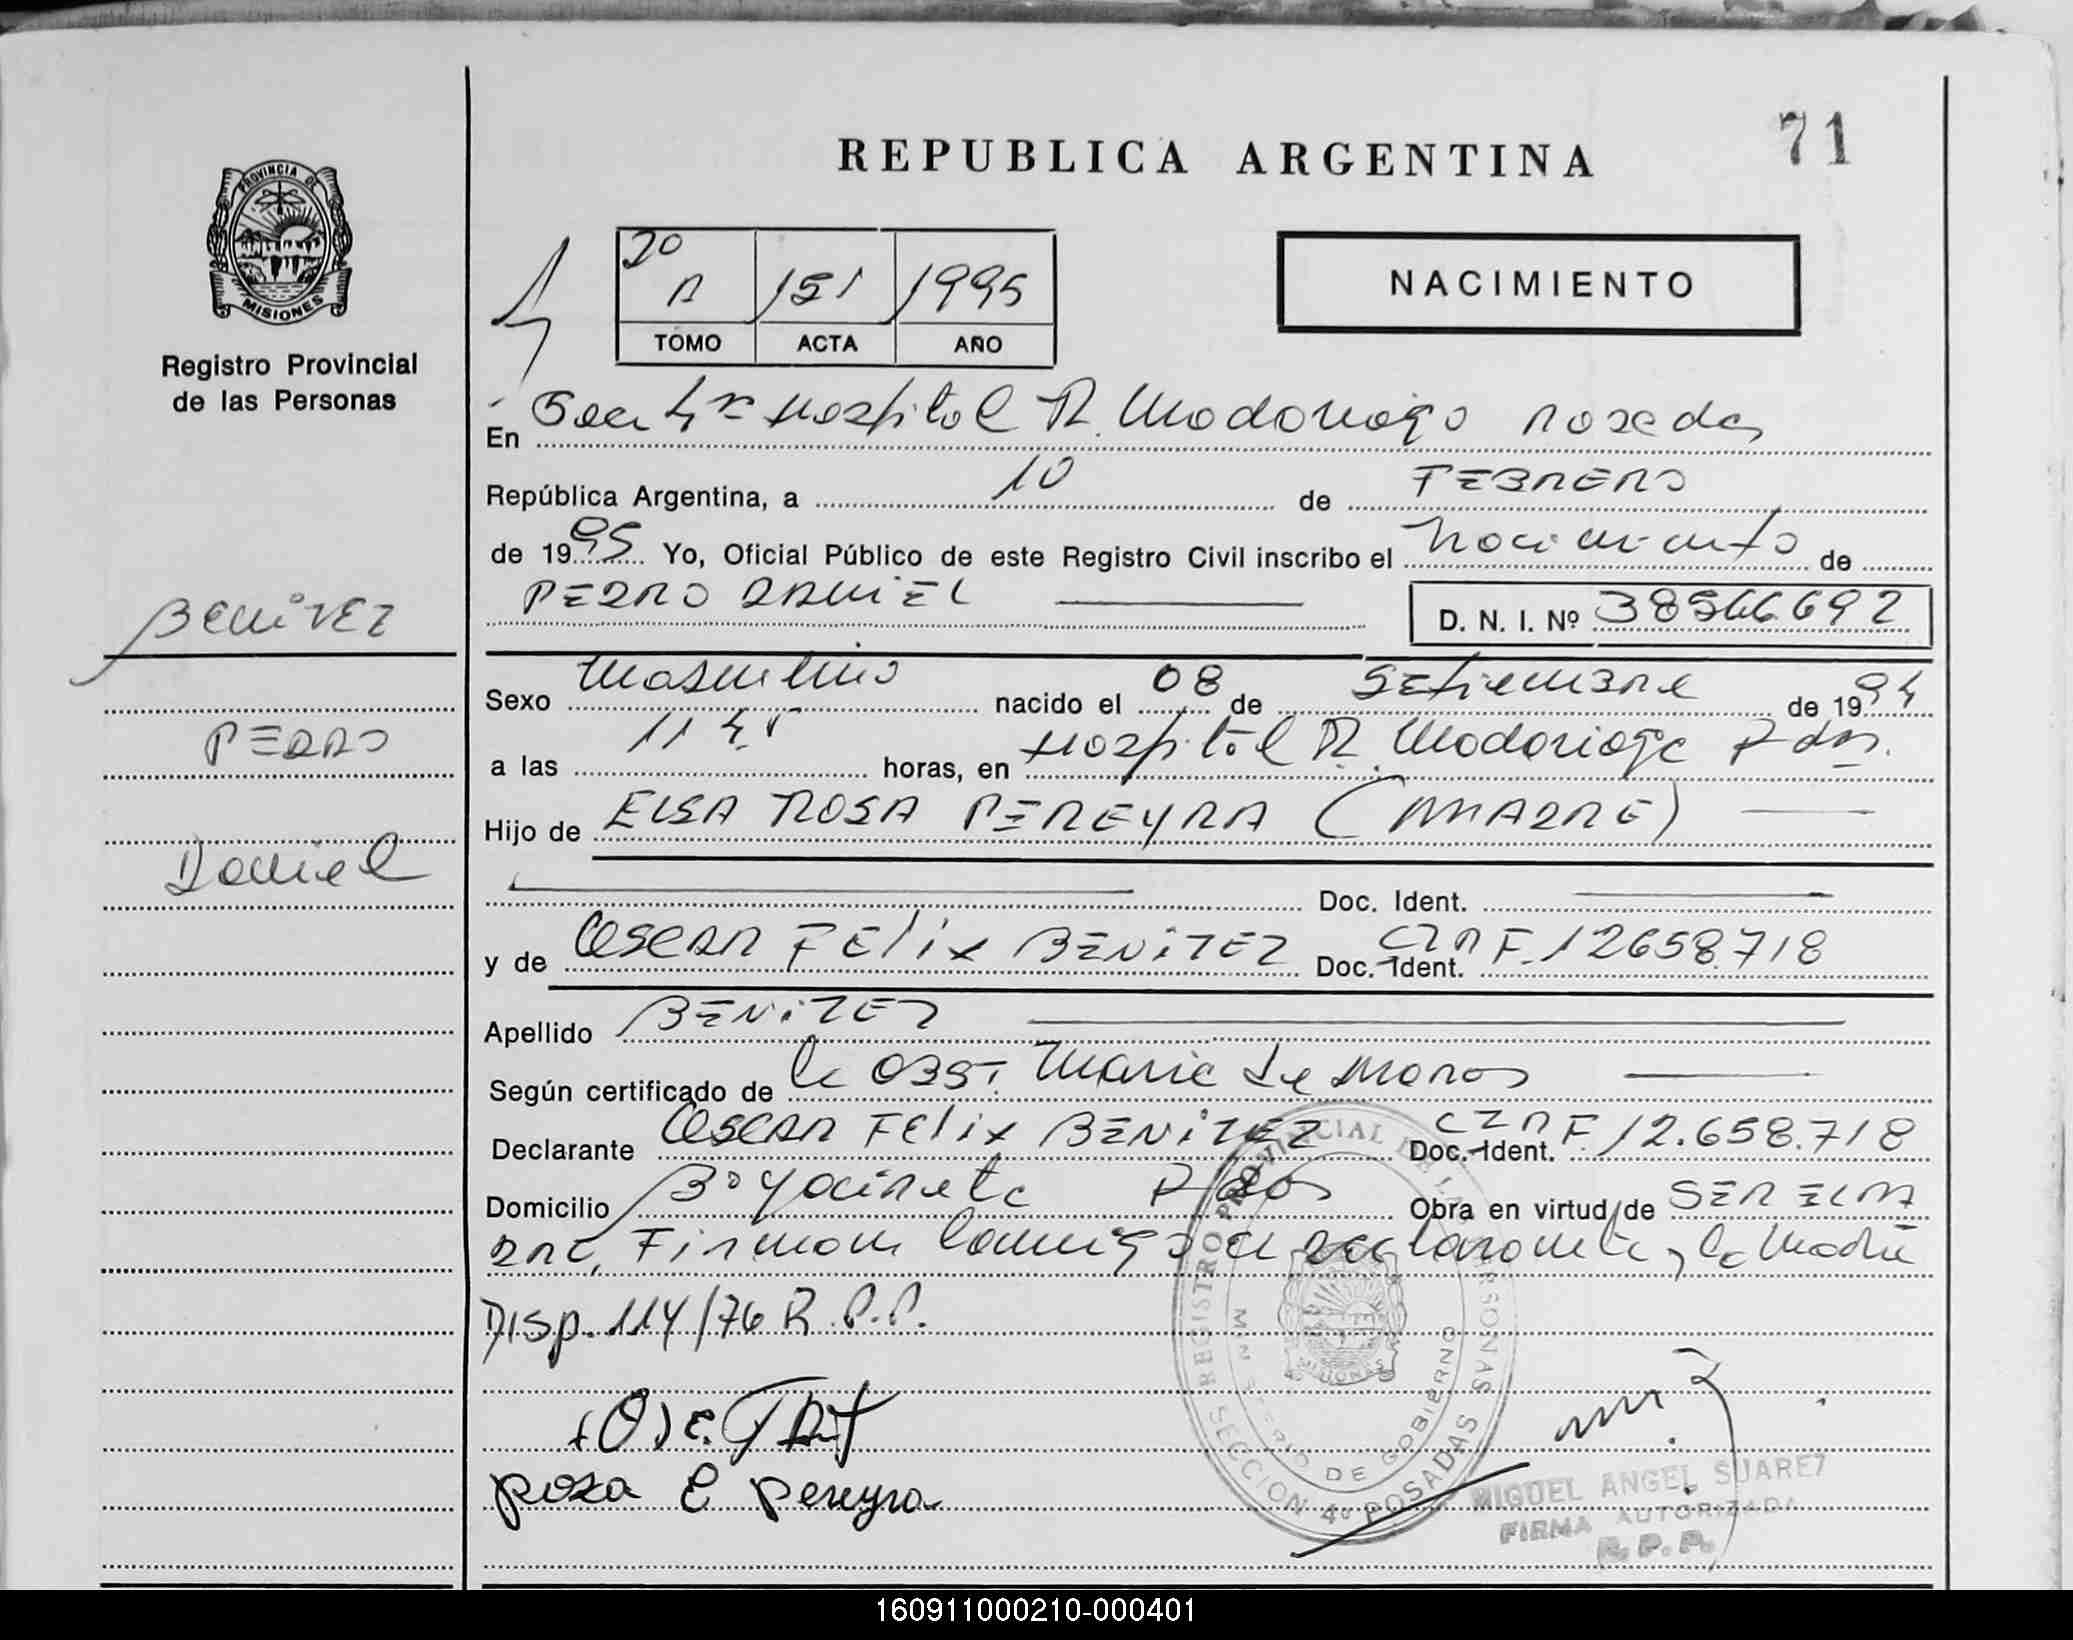 71
REPUBLICA ARGENTINA
PROVINCIA DE
MISIONES
2º
A 151 1995
TOMO ACTA AÑO
NACIMIENTO
Registro Provincial
de las Personas
En Secc 4ª Hospital R. Madariaga Posadas
República Argentina, a 10 de FEBRERO
de 1995 Yo, Oficial Público de este Registro Civil inscribo el Nacimiento de
PEDRO DANIEL D. N. I. Nº 38566692
BENITEZ
Sexo Masculino nacido el 08 de Setiembre de 1994
PEDRO
a las 11 45 horas, en Hospital R. Madariaga Pdas.
Hijo de ELSA ROSA PEREYRA (MADRE)
Daniel
Doc. Ident.
y de OSCAR FELIX BENITEZ Doc. Ident. F. 12658.718
Apellido BENITEZ
Según certificado de la Obst. Maria
Declarante OSCAR FELIX BENITEZ Doc. Ident. F 12.658.718
Domicilio Bº Yacireta Pdas Obra en virtud de SER EL
Firman conmigo el declarante y la Madre
Disp. 114/76 R.P.P.
Rosa E Pereyra
REGISTRO PROVINCIAL DE LAS PERSONAS
MINISTERIO DE GOBIERNO
SECCION 4º POSADAS
MIGUEL ANGEL SUAREZ
FIRMA AUTORIZADA
R. P. P.
160911000210-000401